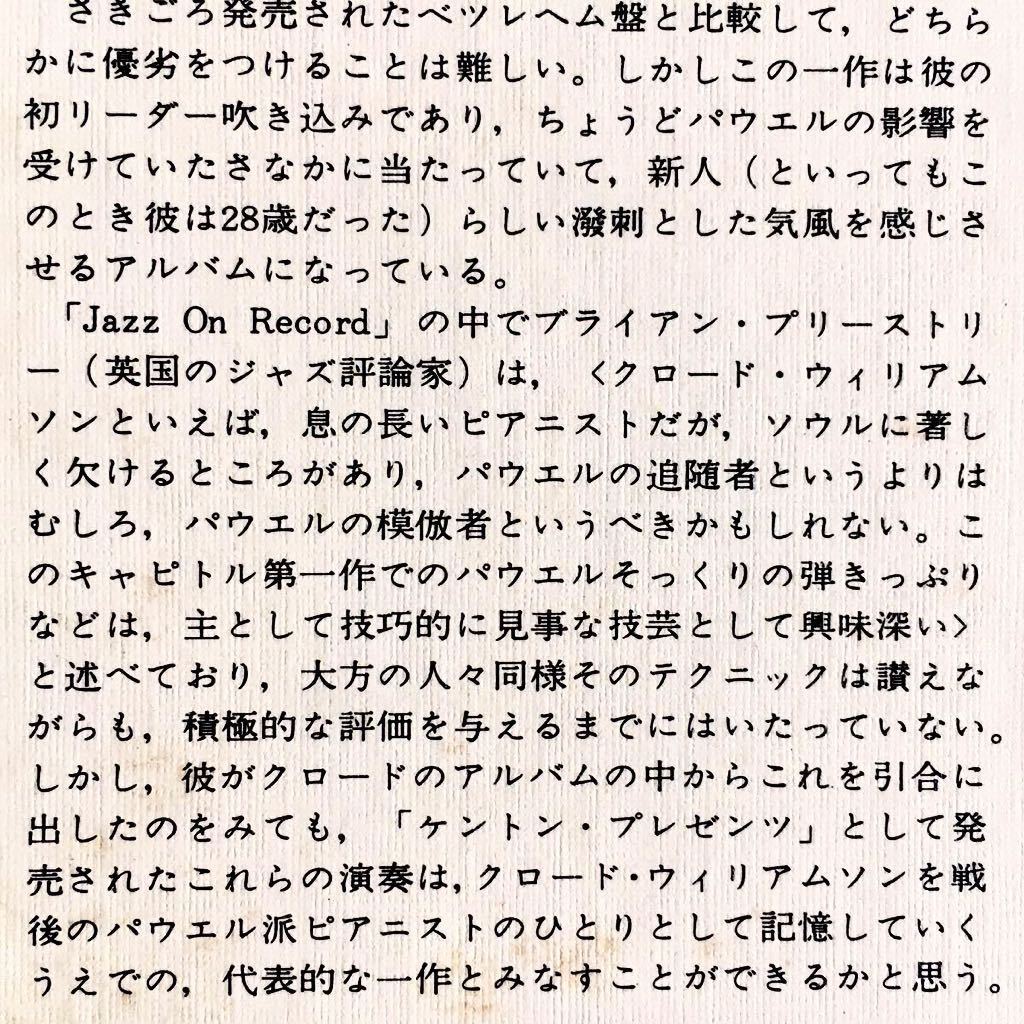 さきごろ発売されたベツレヘム盤と比較して，どちら
かに優劣をつけることは難しい。しかしこの一作は彼の
初リーダー吹き込みであり，ちょうどパウエルの影響を
受けていたさなかに当たっていて，新人（といってもこ
のとき彼は28歳だった）らしい潑刺とした気風を感じさ
せるアルバムになっている。
「Jazz On Record」の中でブライアン・プリーストリ
ー（英国のジャズ評論家）は，〈クロード・ウィリアム
ソンといえば，息の長いピアニストだが，ソウルに著し
く欠けるところがあり，パウエルの追随者というよりは
むしろ，パウエルの模倣者というべきかもしれない。こ
のキャピトル第一作でのパウエルそっくりの弾きっぷり
などは，主として技巧的に見事な技芸として興味深い〉
と述べており，大方の人々同様そのテクニックは讃えな
がらも，積極的な評価を与えるまでにはいたっていない。
しかし，彼がクロードのアルバムの中からこれを引合に
出したのをみても，「ケントン・プレゼンツ」として発
売されたこれらの演奏は，クロード・ウィリアムソンを戦
後のパウエル派ピアニストのひとりとして記憶していく
うえでの，代表的な一作とみなすことができるかと思う。